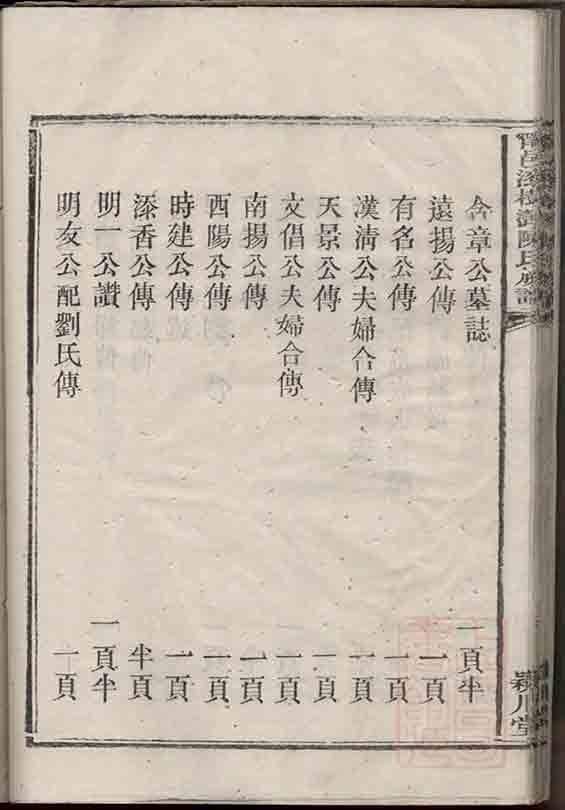 含章公墓誌 一頁半
遠揚公傳 一頁
有名公傳 一頁
漢清公夫婦合傳 一頁
天景公傳 一頁
文倡公夫婦合傳 一頁
南揚公傳 一頁
酉陽公傳 一頁
時建公傳 一頁
漛香公傳 半頁
明一公讚 一頁半
明友公配劉氏傳 一頁
陳氏族譜
潁川堂